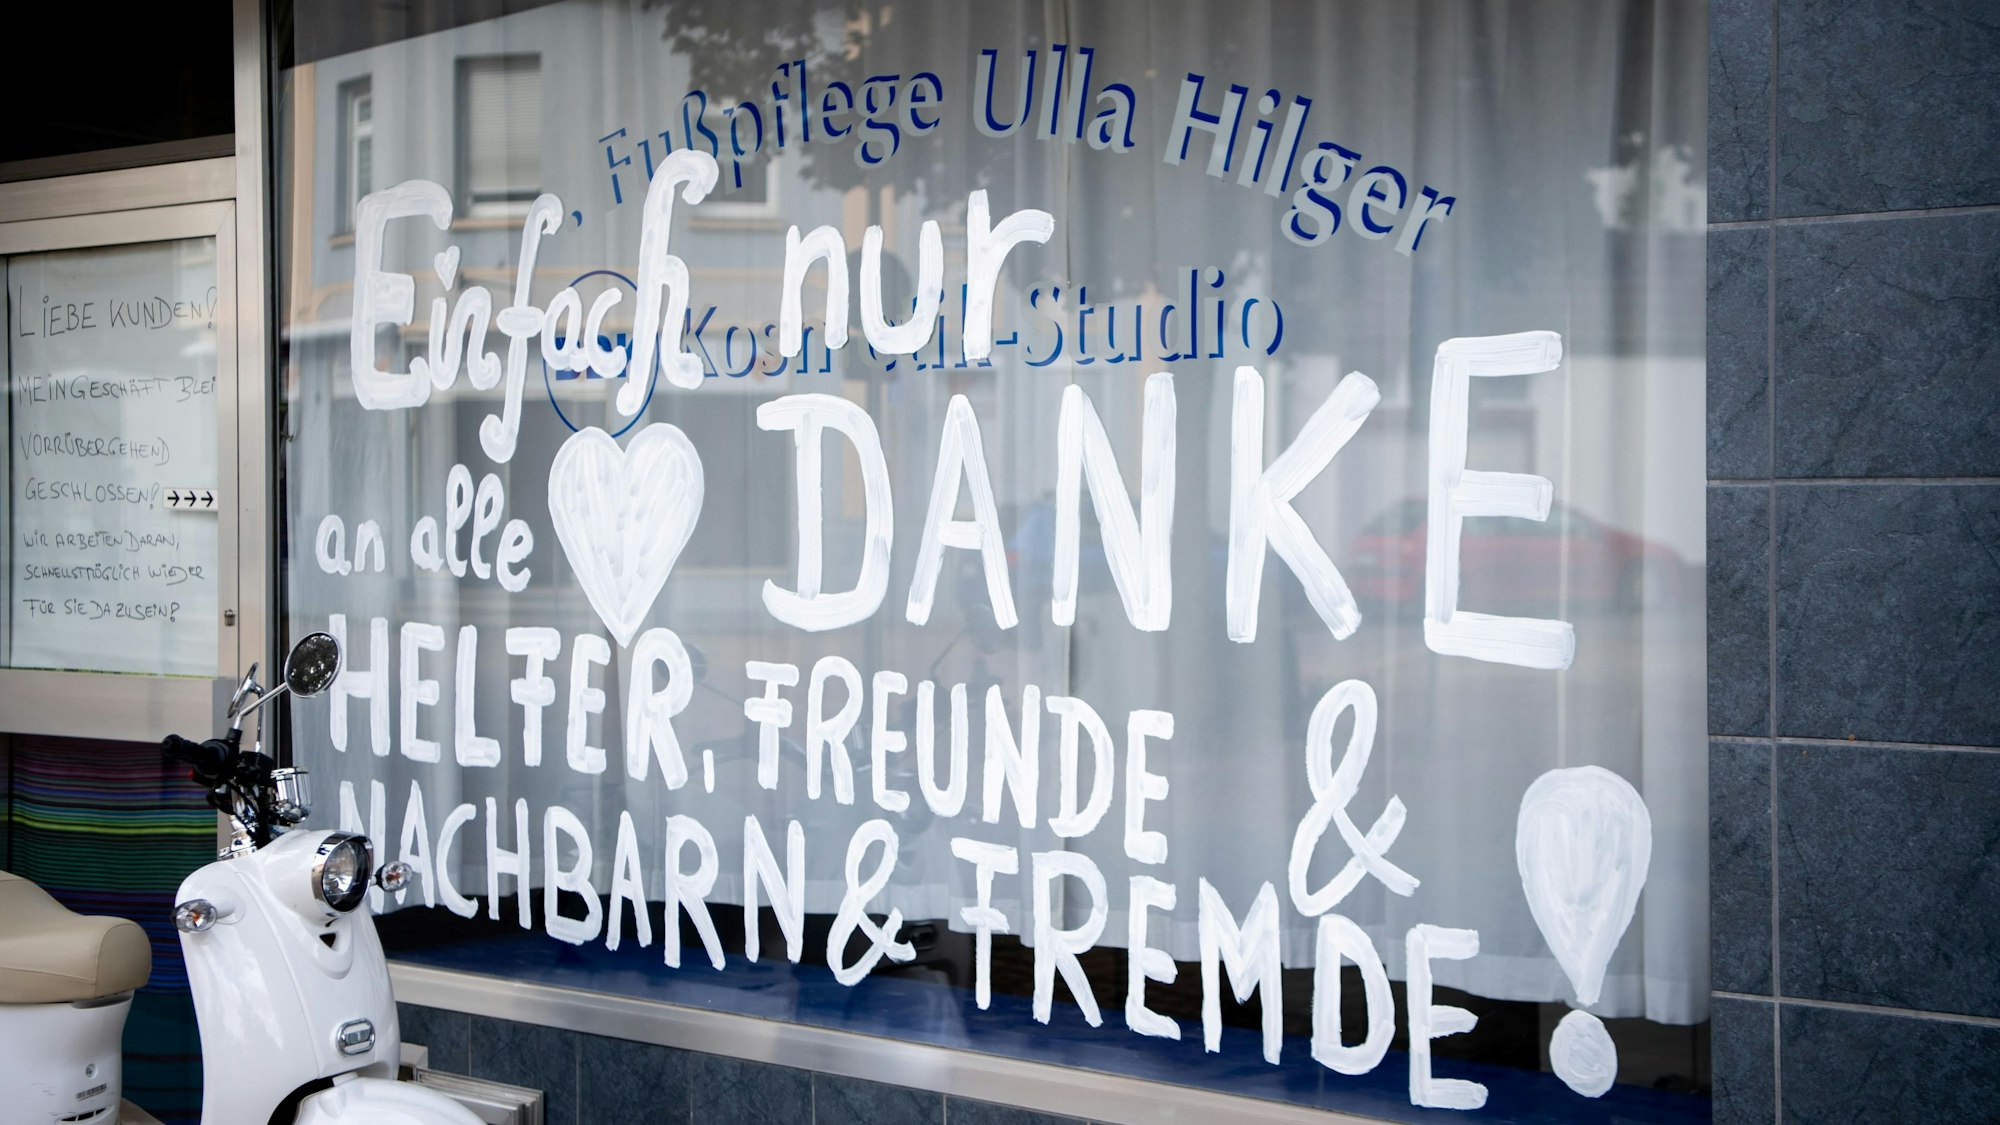 Fußpflege Ulla Hilger
Kosmetik-Studio
Einfach nur
DANKE
an alle
HELFER, FREUNDE &
NACHBARN & FREMDE!
LIEBE KUNDEN!
MEIN GESCHÄFT BLEI
VORRÜBERGEHEND
GESCHLOSSEN!
WIR ARBEITEN DARAN,
SCHNELLSTMÖGLICH WIEDER
FÜR SIE DA ZU SEIN!